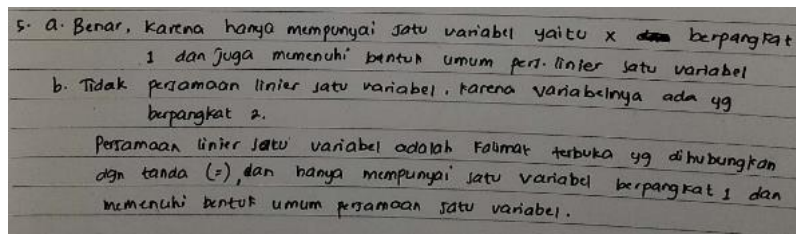 5. a. Benar, karena hanya mempunyai satu variabel yaitu x berpangkat
1 dan juga memenuhi bentuk umum pers. linier satu variabel
b. Tidak persamaan linier satu variabel, karena variabelnya ada yg
berpangkat 2.
Persamaan linier satu variabel adalah kalimat terbuka yg dihubungkan
dgn tanda (=), dan hanya mempunyai satu variabel berpangkat 1 dan
memenuhi bentuk umum persamaan satu variabel.